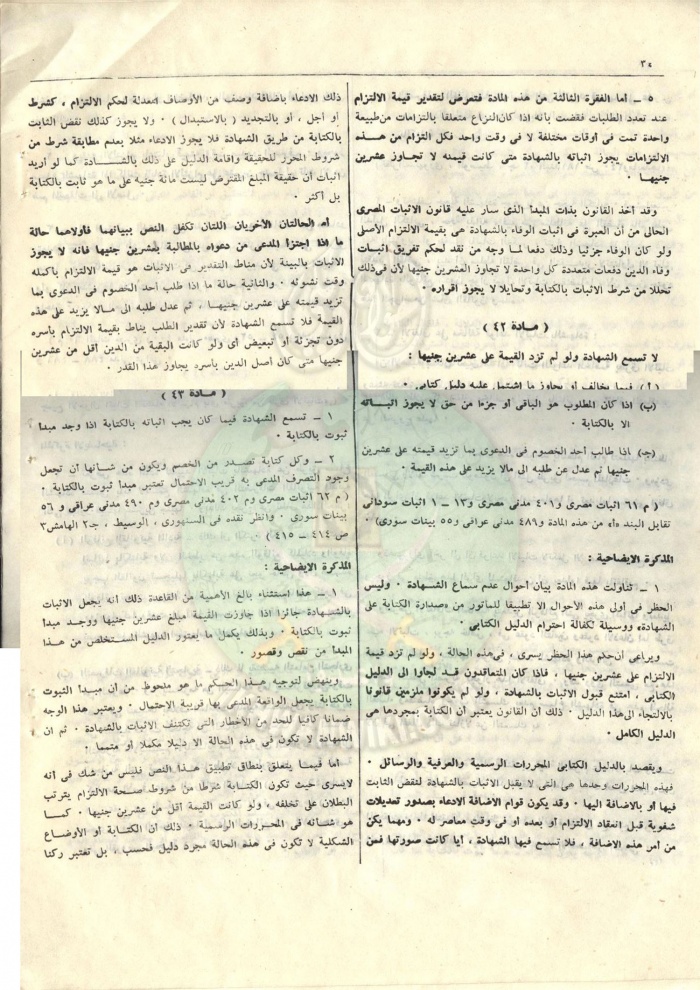 ٣٤
٥ ـ أما الفقرة الثالثة من هذه المادة فتعرض لتقدير قيمة الالتزام
عند تعدد الطلبات فقضت بأنه اذا كان النزاع متعلقا بالتزامات من طبيعة
واحدة تمت فى أوقات مختلفة لا فى وقت واحد فكل التزام من هذه
الالتزامات يجوز اثباته بالشهادة متى كانت قيمته لا تجاوز عشرين
جنيها ٠
وقد أخذ القانون بذات المبدأ الذى سار عليه قانون الاثبات المصرى
الحالى من أن العبرة فى اثبات الوفاء بالشهادة هى بقيمة الالتزام الأصلى
ولو كان الوفاء جزئيا وذلك دفعا لما وجه من نقد لحكم تفريق اثبات
وفاء الدين دفعات متعددة كل واحدة لا تجاوز العشرين جنيها لأن فى ذلك
تخللا من شرط الاثبات بالكتابة وتحايلا لا يجوز اقراره ٠
( مادة ٤٢ )
لا تسمع الشهادة ولو لم تزد القيمة على عشرين جنيها :
( أ ) فيما يخالف أو يجاوز ما اشتمل عليه دليل كتابى ٠
(ب) اذا كان المطلوب هو الباقى أو جزءا من حق لا يجوز اثباته
الا بالكتابة ٠
(جـ) اذا طالب أحد الخصوم فى الدعوى بما تزيد قيمته على عشرين
جنيها ثم عدل عن طلبه الى مالا يزيد على هذه القيمة ٠
( م ٦١ اثبات مصرى و٤٠١ مدنى مصرى و١٣ ــ ١ اثبات سودانى
تقابل البند «أ» من هذه المادة و٤٨٩ مدنى عراقى و٥٥ بينات سورى) ٠
المذكرة الايضاحية :
١ ـ تناولت هذه المادة بيان أحوال عدم سماع الشهادة ٠ وليس
الحظر فى أولى هذه الأحوال الا تطبيقا للمأثور من «صدارة الكتابة على
الشهادة» ووسيلة لكفالة احترام الدليل الكتابى ٠
ويراعى أن حكم هذا الحظر يسرى ، فى هذه الحالة ، ولو لم تزد قيمة
الالتزام على عشرين جنيها ، فاذا كان المتعاقدون قد لجأوا الى الدليل
الكتابى ، امتنع قبول الاثبات بالشهادة ، ولو لم يكونوا ملزمين قانونا
بالالتجاء الى هذا الدليل ٠ ذلك أن القانون يعتبر أن الكتابة بمجردها هى
الدليل الكامل ٠
ويقصد بالدليل الكتابى المحررات الرسمية والعرفية والرسائل ٠
فهذه المحررات وحدها هى التى لا يقبل الاثبات بالشهادة لنقض الثابت
فيها أو بالاضافة اليها ٠ وقد يكون قوام الاضافة الادعاء بصدور تعديلات
شفوية قبل انعقاد الالتزام أو بعده أو فى وقت معاصر له ٠ ومهما يكن
من أمر هذه الاضافة ، فلا تسمع فيها الشهادة ، أيا كانت صورتها فمن
ذلك الادعاء باضافة وصف من الأوصاف المعدلة لحكم الالتزام ، كشرط
أو أجل ، أو بالتجديد ( بالاستبدال ) ٠ ولا يجوز كذلك نقض الثابت
بالكتابة من طريق الشهادة فلا يجوز الادعاء مثلا بعدم مطابقة شرط من
شروط المحرر للحقيقة واقامة الدليل على ذلك بالشهادة كما لو أريد
اثبات أن حقيقة المبلغ المقترض ليست مائة جنيه على ما هو ثابت بالكتابة
بل أكثر ٠
أما الحالتان الأخريان اللتان تكفل النص ببيانهما فأولاهما حالة
ما اذا اجتزأ المدعى من دعواه بالمطالبة بعشرين جنيها فانه لا يجوز
الاثبات بالبينة لأن مناط التقدير فى الاثبات هو قيمة الالتزام بأكمله
وقت نشوئه ٠ والثانية حالة ما اذا طلب أحد الخصوم فى الدعوى بما
تزيد قيمته على عشرين جنيها ، ثم عدل طلبه الى مالا يزيد على هذه
القيمة فلا تسمع الشهادة لأن تقدير الطلب يناط بقيمة الالتزام بأسره
دون تجزئة أو تبعيض أى ولو كانت البقية من الدين أقل من عشرين
جنيها متى كان أصل الدين بأسره يجاوز هذا القدر ٠
( مادة ٤٣ )
١ ـ تسمع الشهادة فيما كان يجب اثباته بالكتابة اذا وجد مبدأ
ثبوت بالكتابة ٠
٢ ـ وكل كتابة تصدر من الخصم ويكون من شأنها أن تجعل
وجود التصرف المدعى به قريب الاحتمال تعتبر مبدأ ثبوت بالكتابة ٠
( م ٦٢ اثبات مصرى وم ٤٠٢ مدنى مصرى وم ٤٩٠ مدنى عراقى و ٥٦
بينات سورى ٠ وانظر نقده فى السنهورى ، الوسيط ، جـ٢ الهامش٣
ص ٤١٤ ـ ٤١٥ ) ٠
المذكرة الايضاحية :
١ ـ هذا استثناء بالغ الأهمية من القاعدة ذلك أنه يجعل الاثبات
بالشهادة جائزا اذا جاوزت القيمة مبلغ عشرين جنيها ووجد مبدأ
ثبوت بالكتابة ٠ وبذلك يكمل ما يعتور الدليل المستخلص من هذا
المبدأ من نقص وقصور ٠
وينهض لتوجيه هذا الحكم ما هو ملحوظ من أن مبدأ الثبوت
بالكتابة يجعل الواقعة المدعى بها قريبة الاحتمال ٠ ويعتبر هذا الوجه
ضمانا كافيا للحد من الأخطار التى تكتنف الاثبات بالشهادة ٠ ثم ان
الشهادة لا تكون فى هذه الحالة الا دليلا مكملا أو متمما ٠
أما فيما يتعلق بنطاق تطبيق هذا النص فليس من شك فى أنه
لايسرى حيث تكون الكتابة شرطا من شروط صحة الالتزام يترتب
البطلان على تخلفه ، ولو كانت القيمة أقل من عشرين جنيها ٠ كما
هو شأنه فى المحررات الرسمية ٠ ذلك أن الكتابة أو الأوضاع
الشكلية لا تكون فى هذه الحالة مجرد دليل فحسب ، بل تعتبر ركنا